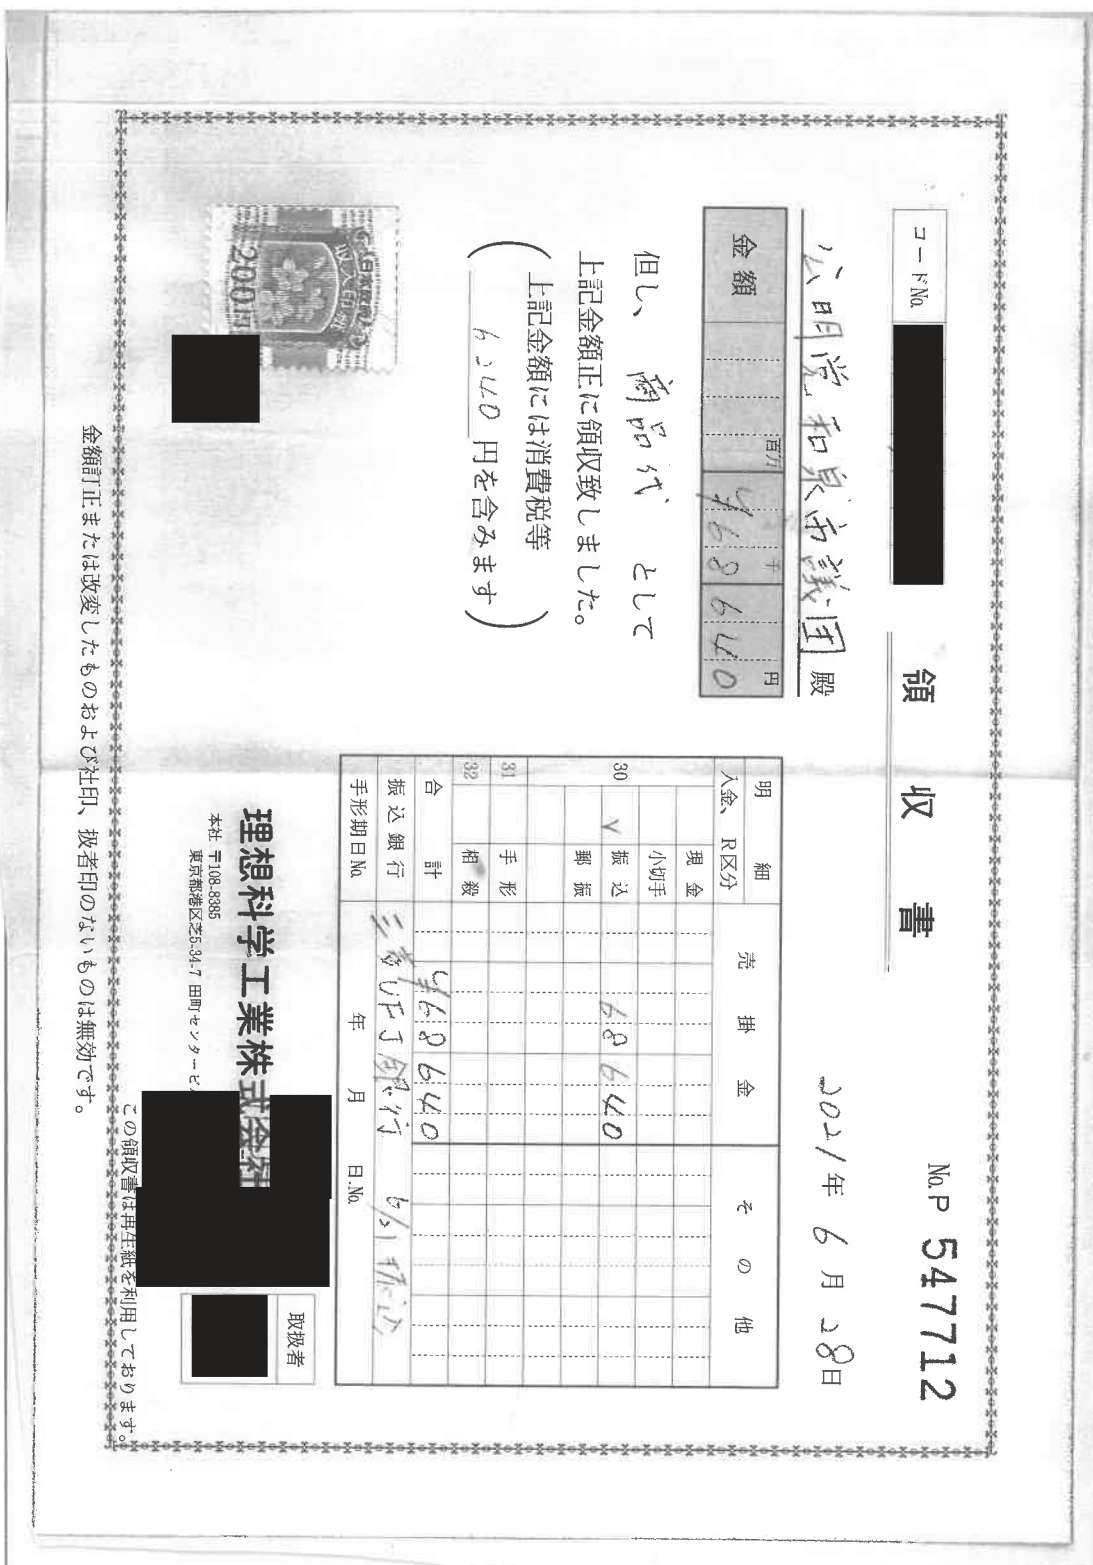 領収書
No.P 547712
コードNo.
2021年6月28日
公明党和泉市議団 殿
金額 百万 千 円
¥68640
但し、商品代として
上記金額正に領収致しました。
(上記金額には消費税等
6240円を含みます)
日本政府
収入印紙
200円
明細 売掛金 その他
入金、R区分
現金
小切手
30 ∨ 振込 68640
郵振
31 手形
32 相殺
合計 ¥68640
振込銀行 三菱UFJ銀行 6/21振込
手形期日No. 年 月 日.No.
理想科学工業株式会社
本社 〒108-8385
東京都港区芝5-34-7 田町センタービ
取扱者
この領収書は再生紙を利用しております。
金額訂正または改変したものおよび社印、扱者印のないものは無効です。